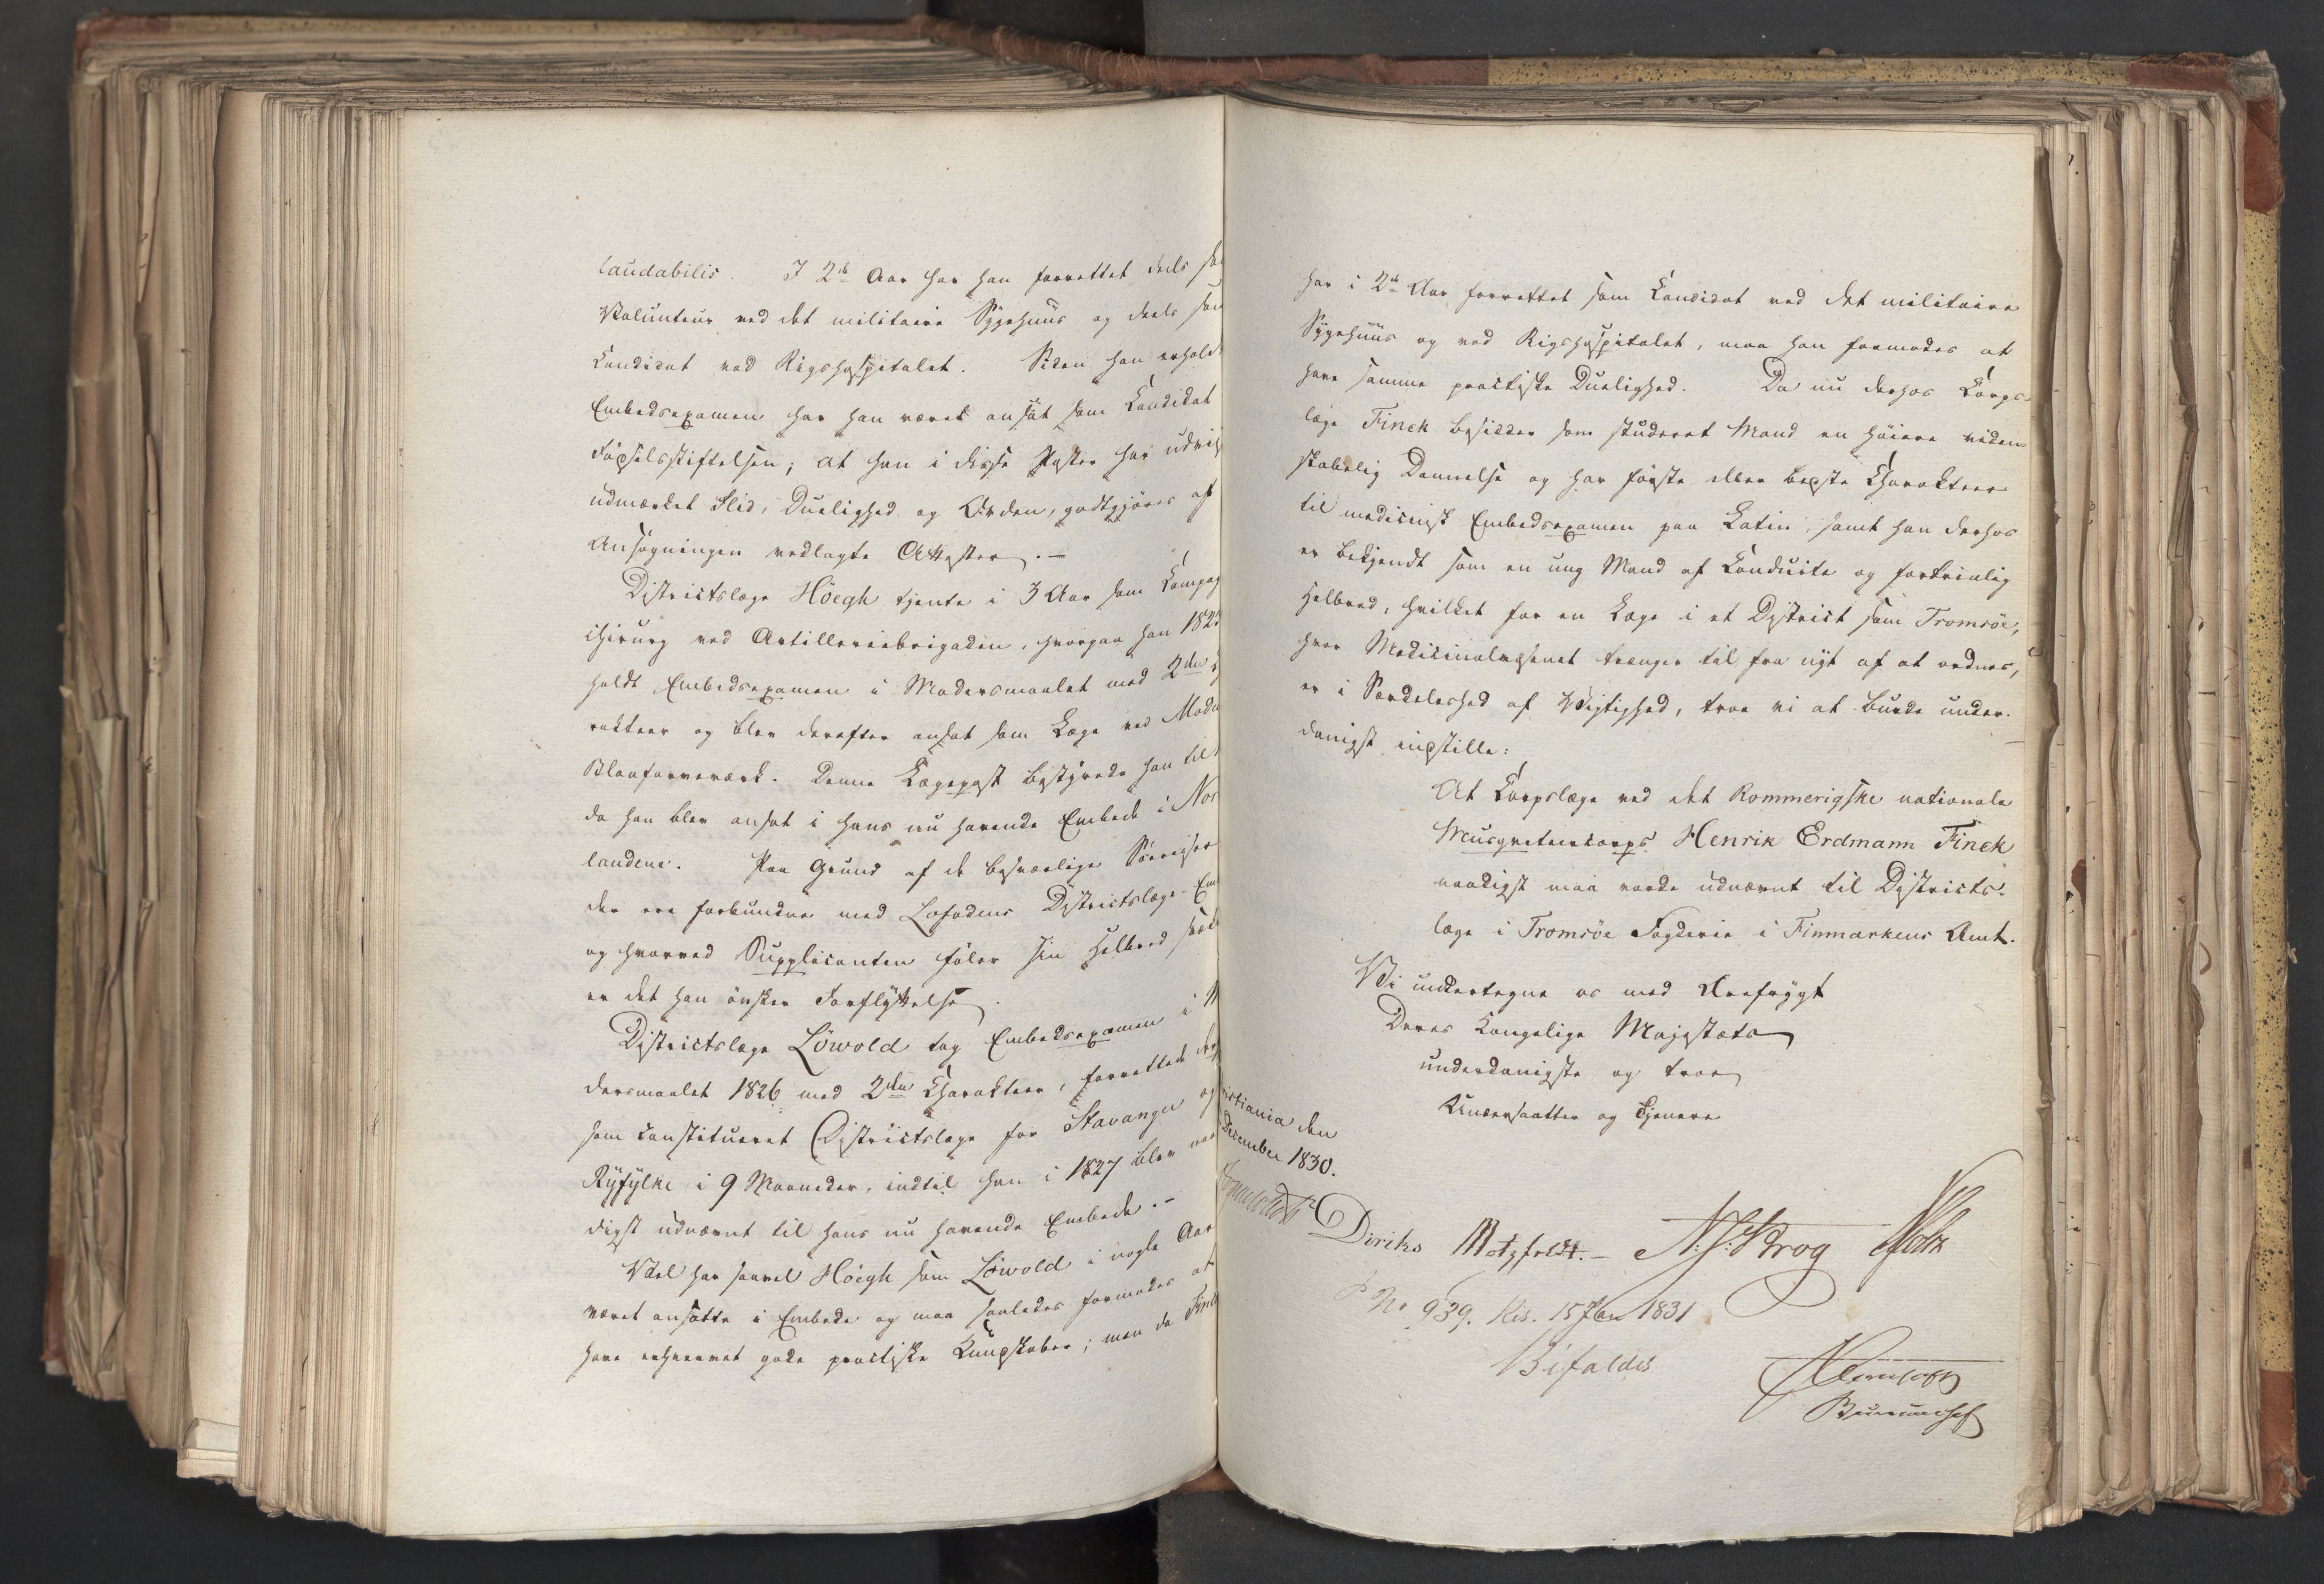 laudabilis. I 2de Aar har han forrettet deels so
Volunteur ved det militaire Sygehuus og deels som
Candidat ved Rigshospitalet. Siden han erholdt
Embedsexamen har han været ansat som Candidat
Födselsstiftelsen; at han i disse Poster har udviis
udmærket Flid, Duelighed og Orden, godtgjöres af
Ansögningen vedlagte Attester. –
Districtslæge Höegh tjente i 3 Aar som Compag
chirurg ved Artilleriebrigaden, hvorpaa han 182
holdt Embedsexamen i Modersmaalet med 2den
rakteer og blev derefter ansat som Læge ved Modu
Blaafarveværk. Denne Lægepost bestyrede han til
da han blev ansat i hans nu havende Embede i Nor
landene. Paa Grund af de besværlige Söereiser
der ere forbundne med Lofodens Districtslæge-Em
og hvorved Supplicanten föler sin Helbred svæk
er det han önsker Forflyttelse.
Districtslæge Löwold tog Embedsexamen i
dersmaalet 1826 med 2den Charakteer, forrettede der
som constitueret Districtslæge for Stavanger og
Ryfylke i 9 Maaneder, indtil han i 1827 blev naa
digst udnævnt til hans nu havende Embede. –
Vel har saavel Höegh som Löwold i nogle Aar
været ansatte i Embede og maa saaledes formodes at
have erhvervet gode practiske Kundskaber; men da Finck
har i 2de Aar forrettet som Candidat ved det militaire
Sygehuus og ved Rigshospitalet, maa han formodes at
have samme practiske Duelighed. Da nu derhos Corps-
læge Finck besidder som studeret Mand en höiere viden-
skabelig Dannelse og har förste eller bedste Charakteer
til medicinsk Embedsexamen paa Latin, samt han derhos
er bekjendt som en ung Mand af Conduite og fortrinlig
Helbred, hvilket for en Læge i et District som Tromsöe,
hvor Medicinalvæsenet trænger til fra nyt af at ordnes,
er i Særdeleshed af Vigtighed, troe vi at burde under-
danigst indstille:
At Corpslæge ved det Rommerigske nationale
Musqueteercorps Henrik Erdmann Finck
naadigst maa vorde udnævnt til Districts-
læge i Tromsöe Fogderie i Finmarkens Amt.
Vi undertegne os med Ærefrygt
Deres Kongelige Majestæts
underdanigste og troe
Undersaatter og Tjenere
istiania den
December 1830.
Diriks Motzfeldt. – N. J. Krog Holst
P No 939. Res. 15 Jan 1831
Bifaldes